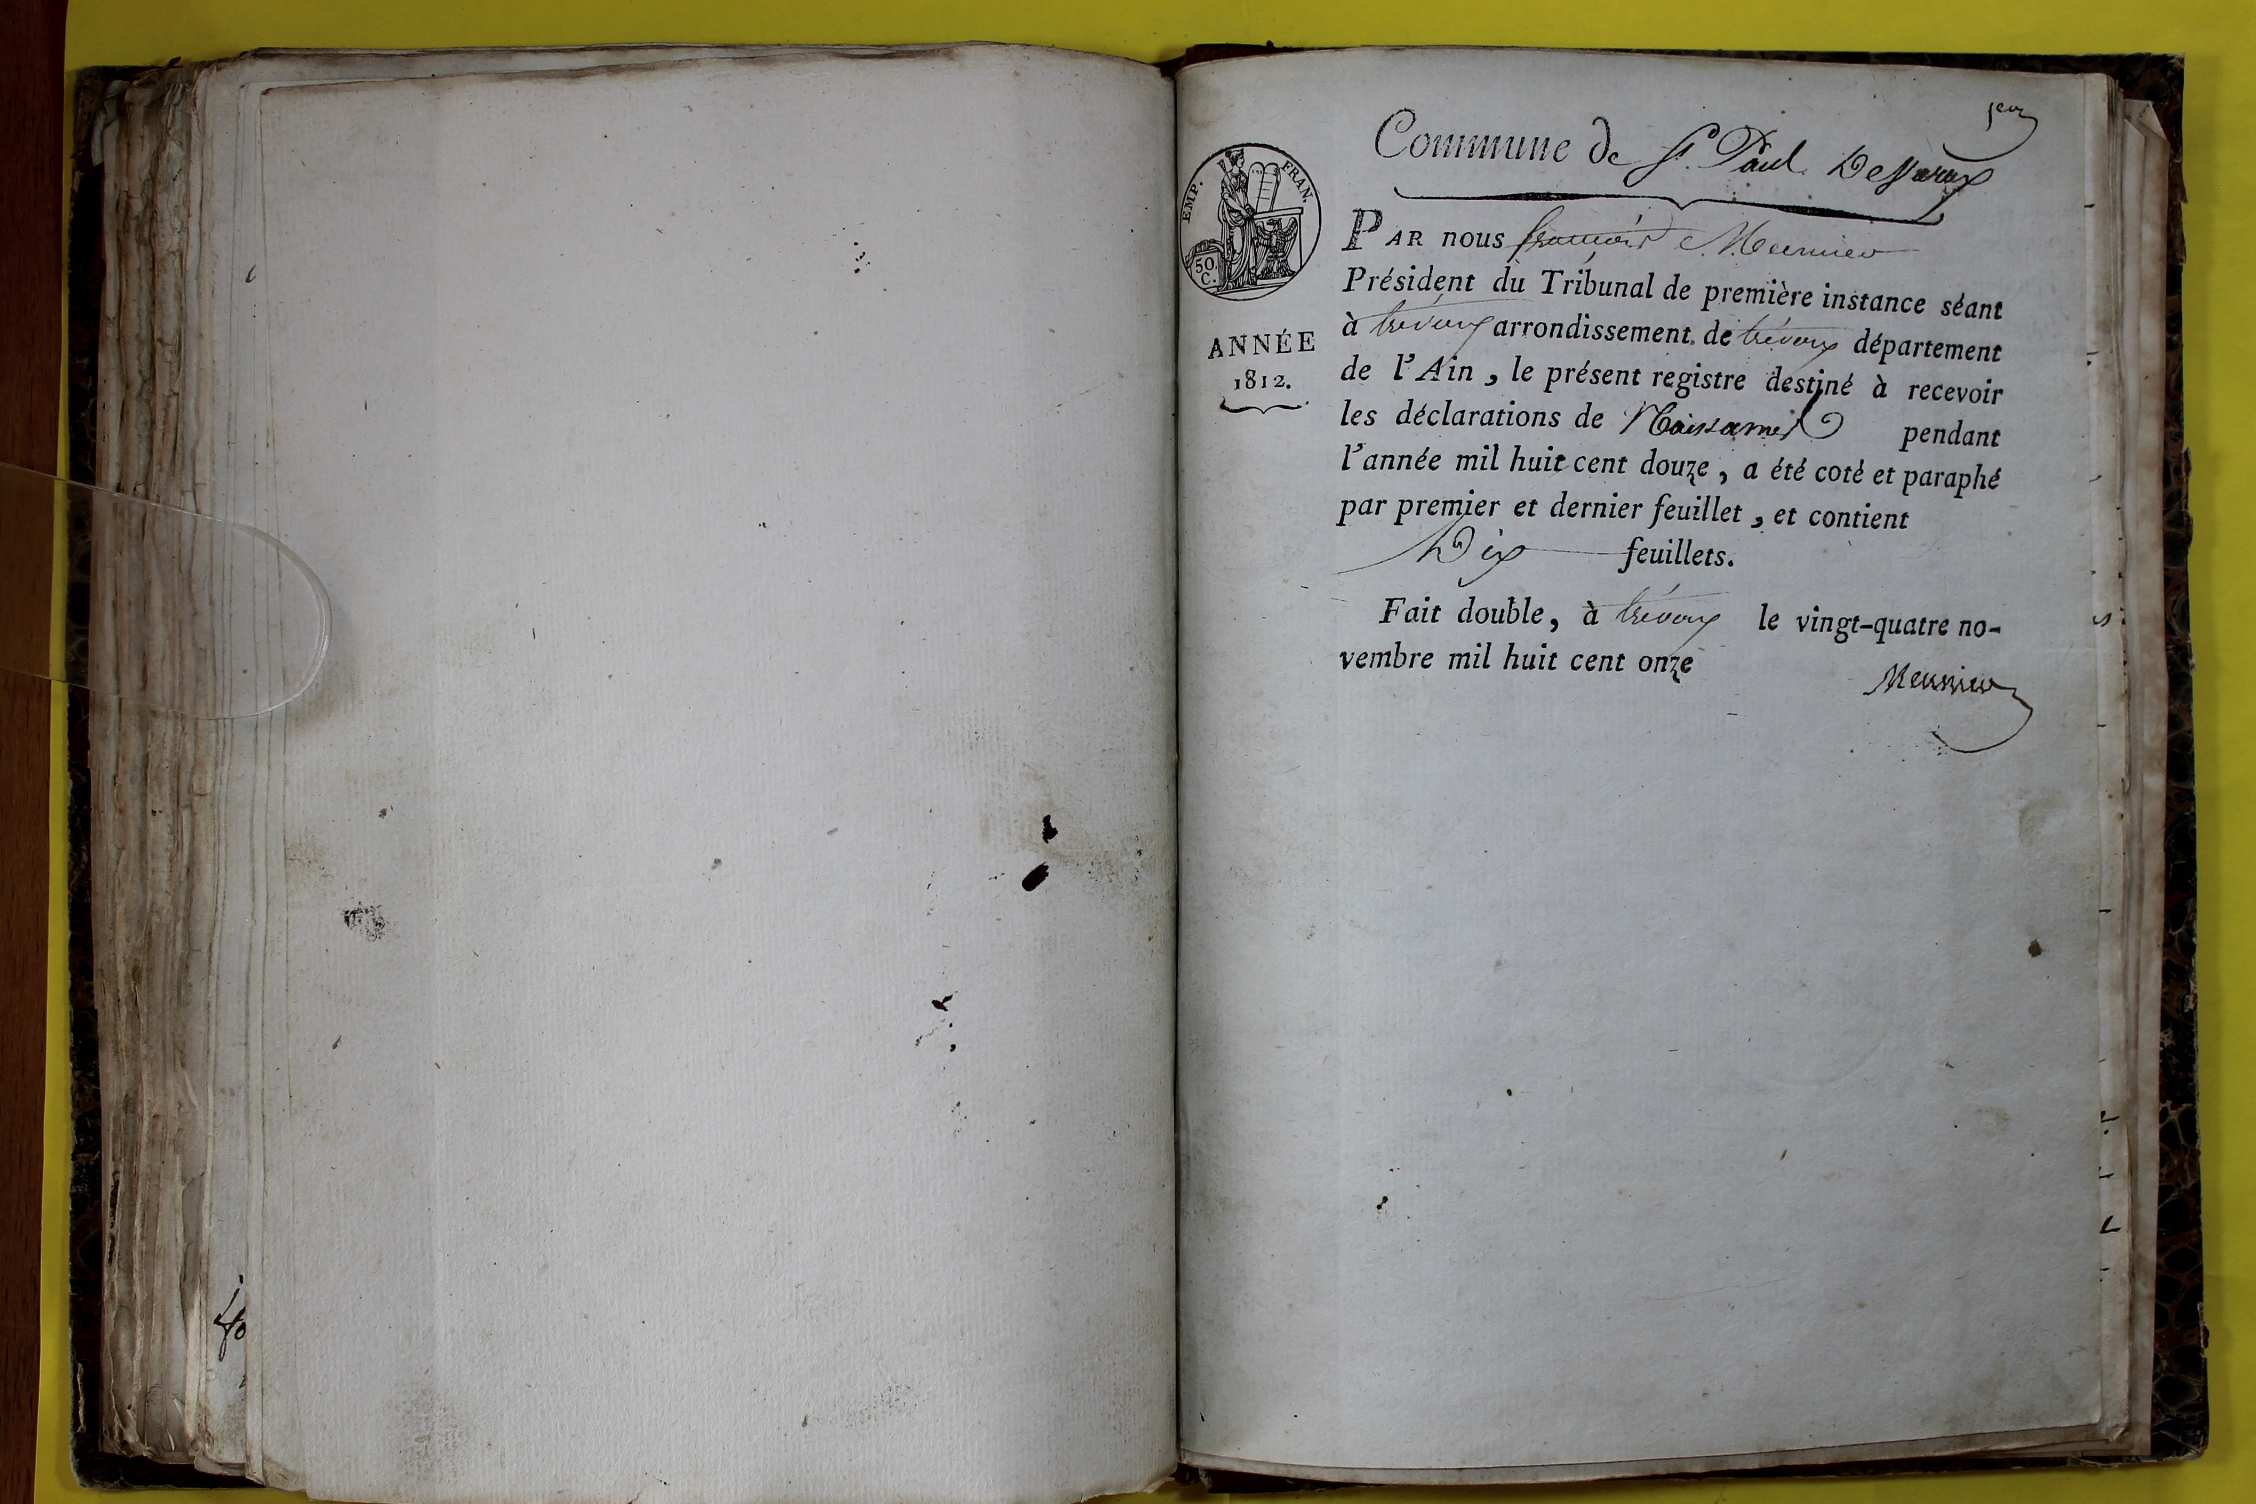 1er
Commune de St. Paul De Varax
EMP. FRAN.
50. C.
ANNÉE
1812.
PAR nous françois Meunier
Président du Tribunal de première instance séant
à trévoux arrondissement de trévoux département
de l'Ain, le présent registre destiné à recevoir
les déclarations de Naissances pendant
l'année mil huit cent douze, a été coté et paraphé
par premier et dernier feuillet, et contient
Dix feuillets.
Fait double, à trévoux le vingt-quatre no-
vembre mil huit cent onze
Meunier